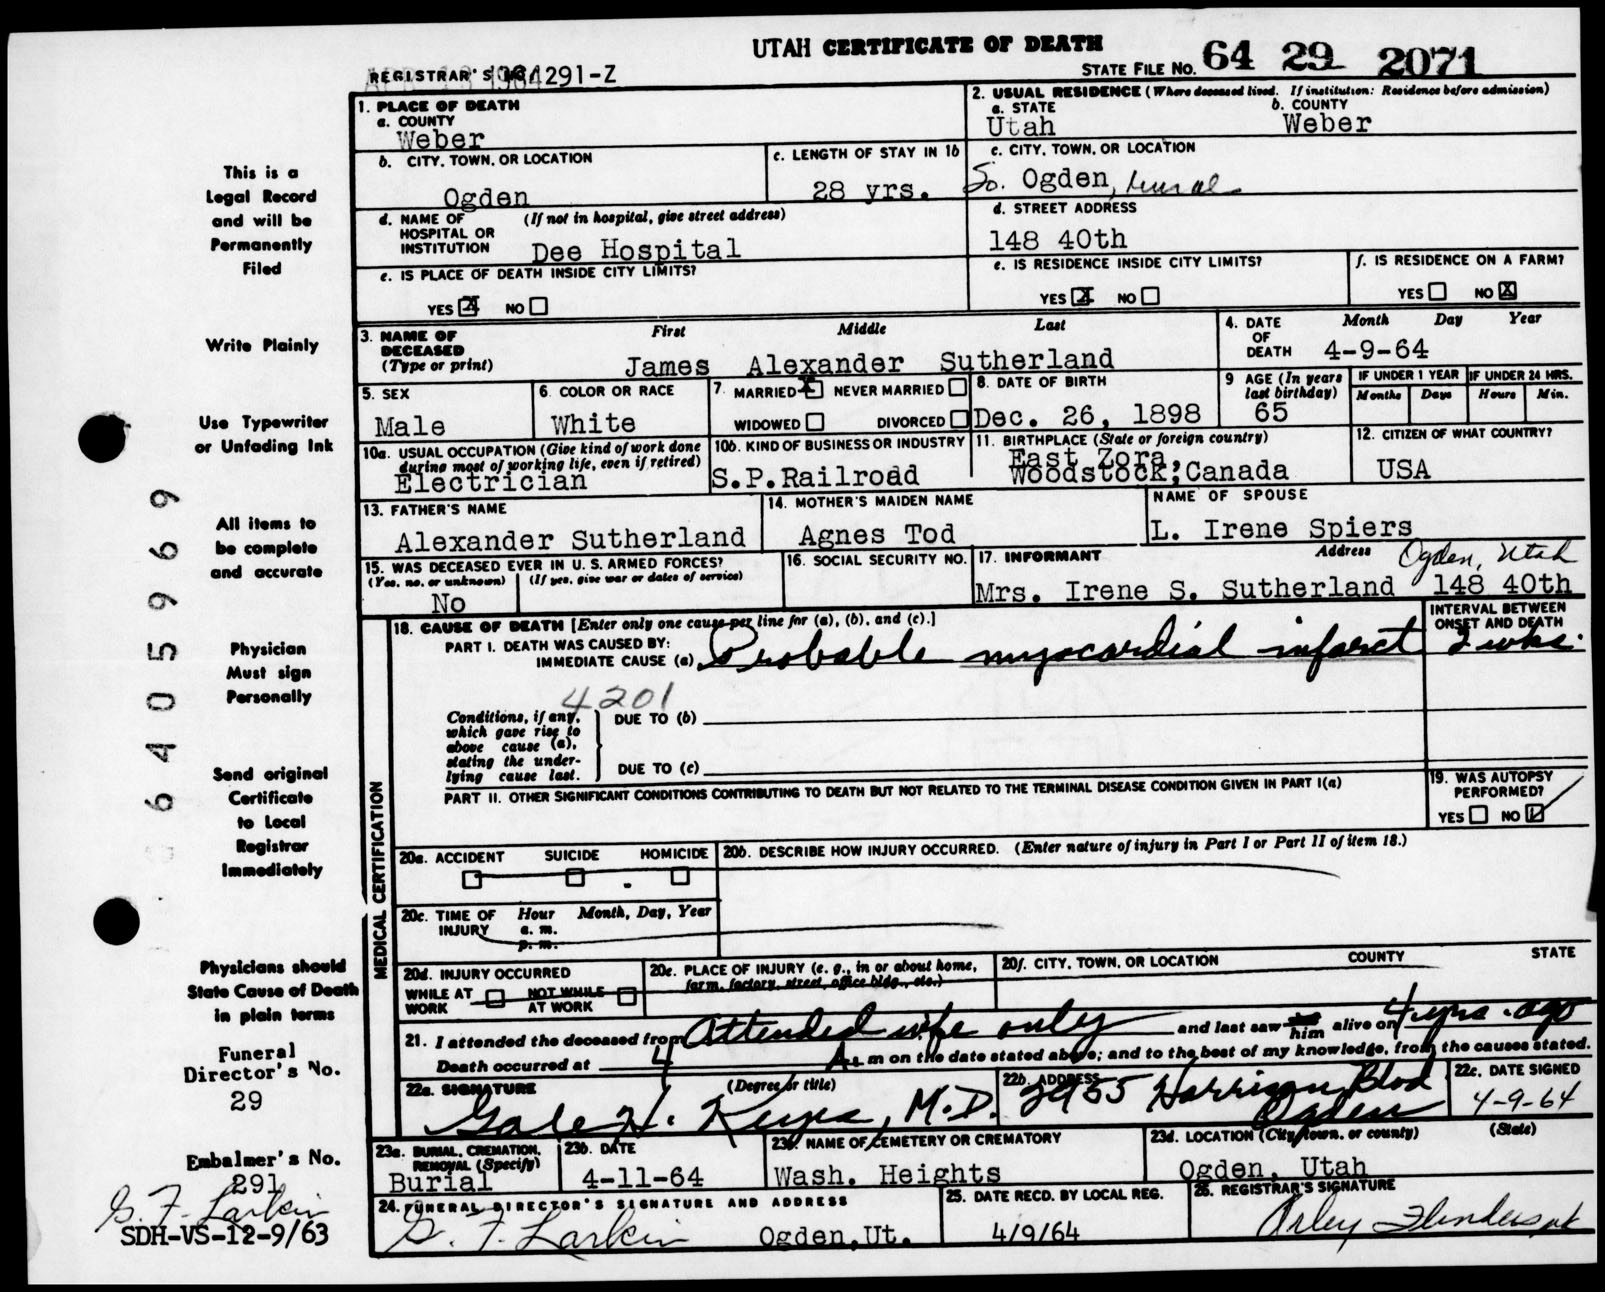 UTAH CERTIFICATE OF DEATH
STATE FILE NO. 64 29 2071
REGISTRAR'S NO. 291-Z
1. PLACE OF DEATH
a. COUNTY
Weber
2. USUAL RESIDENCE (Where deceased lived. If institution: Residence before admission)
a. STATE b. COUNTY
Utah Weber
b. CITY, TOWN, OR LOCATION
Ogden
c. LENGTH OF STAY IN 1b
28 yrs.
c. CITY, TOWN, OR LOCATION
So. Ogden, rural
d. NAME OF HOSPITAL OR INSTITUTION (If not in hospital, give street address)
Dee Hospital
d. STREET ADDRESS
148 40th
e. IS PLACE OF DEATH INSIDE CITY LIMITS?
YES X NO
e. IS RESIDENCE INSIDE CITY LIMITS?
YES X NO
f. IS RESIDENCE ON A FARM?
YES NO X
3. NAME OF DECEASED (Type or print)
First Middle Last
James Alexander Sutherland
4. DATE OF DEATH Month Day Year
4-9-64
5. SEX
Male
6. COLOR OR RACE
White
7. MARRIED X NEVER MARRIED
WIDOWED DIVORCED
8. DATE OF BIRTH
Dec. 26, 1898
9 AGE (In years last birthday)
65
IF UNDER 1 YEAR IF UNDER 24 HRS.
Months Days Hours Min.
10a. USUAL OCCUPATION (Give kind of work done during most of working life, even if retired)
Electrician
10b. KIND OF BUSINESS OR INDUSTRY
S.P.Railroad
11. BIRTHPLACE (State or foreign country)
East Zora,
Woodstock,Canada
12. CITIZEN OF WHAT COUNTRY?
USA
13. FATHER'S NAME
Alexander Sutherland
14. MOTHER'S MAIDEN NAME
Agnes Tod
NAME OF SPOUSE
L. Irene Spiers
15. WAS DECEASED EVER IN U. S. ARMED FORCES?
(Yes, no, or unknown) (If yes, give war or dates of service)
No
16. SOCIAL SECURITY NO.
17. INFORMANT Address
Ogden, Utah
Mrs. Irene S. Sutherland 148 40th
18. CAUSE OF DEATH [Enter only one cause per line for (a), (b), and (c).]
INTERVAL BETWEEN ONSET AND DEATH
PART I. DEATH WAS CAUSED BY:
IMMEDIATE CAUSE (a) Probable myocardial infarct 2 wks.
4201
Conditions, if any, which gave rise to above cause (a), stating the underlying cause last.
DUE TO (b)
DUE TO (c)
PART II. OTHER SIGNIFICANT CONDITIONS CONTRIBUTING TO DEATH BUT NOT RELATED TO THE TERMINAL DISEASE CONDITION GIVEN IN PART I(a)
19. WAS AUTOPSY PERFORMED?
YES NO
MEDICAL CERTIFICATION
20a. ACCIDENT SUICIDE HOMICIDE
20b. DESCRIBE HOW INJURY OCCURRED. (Enter nature of injury in Part I or Part II of item 18.)
20c. TIME OF INJURY Hour Month, Day, Year
a. m.
p. m.
20d. INJURY OCCURRED
WHILE AT WORK NOT WHILE AT WORK
20e. PLACE OF INJURY (e. g., in or about home, farm, factory, street, office bldg., etc.)
20f. CITY, TOWN, OR LOCATION COUNTY STATE
21. I attended the deceased from Attended wife only and last saw him alive on 4 yrs. ago
Death occurred at 4 A. m on the date stated above; and to the best of my knowledge, from the causes stated.
22a. SIGNATURE (Degree or title)
Gale H. M.D.
22b. ADDRESS
2955 Harrison Blvd
Ogden
22c. DATE SIGNED
4-9-64
23a. BURIAL, CREMATION, REMOVAL (Specify)
Burial
23b. DATE
4-11-64
23c. NAME OF CEMETERY OR CREMATORY
Wash. Heights
23d. LOCATION (City, town, or county) (State)
Ogden, Utah
24. FUNERAL DIRECTOR'S SIGNATURE AND ADDRESS
G. F. Larkin Ogden,Ut.
25. DATE RECD. BY LOCAL REG.
4/9/64
26. REGISTRAR'S SIGNATURE
This is a
Legal Record
and will be
Permanently
Filed
Write Plainly
Use Typewriter
or Unfading Ink
All items to
be complete
and accurate
Physician
Must sign
Personally
Send original
Certificate
to Local
Registrar
Immediately
Physicians should
State Cause of Death
in plain terms
Funeral
Director's No.
29
Embalmer's No.
291
G. F. Larkin
SDH-VS-12-9/63
64059699